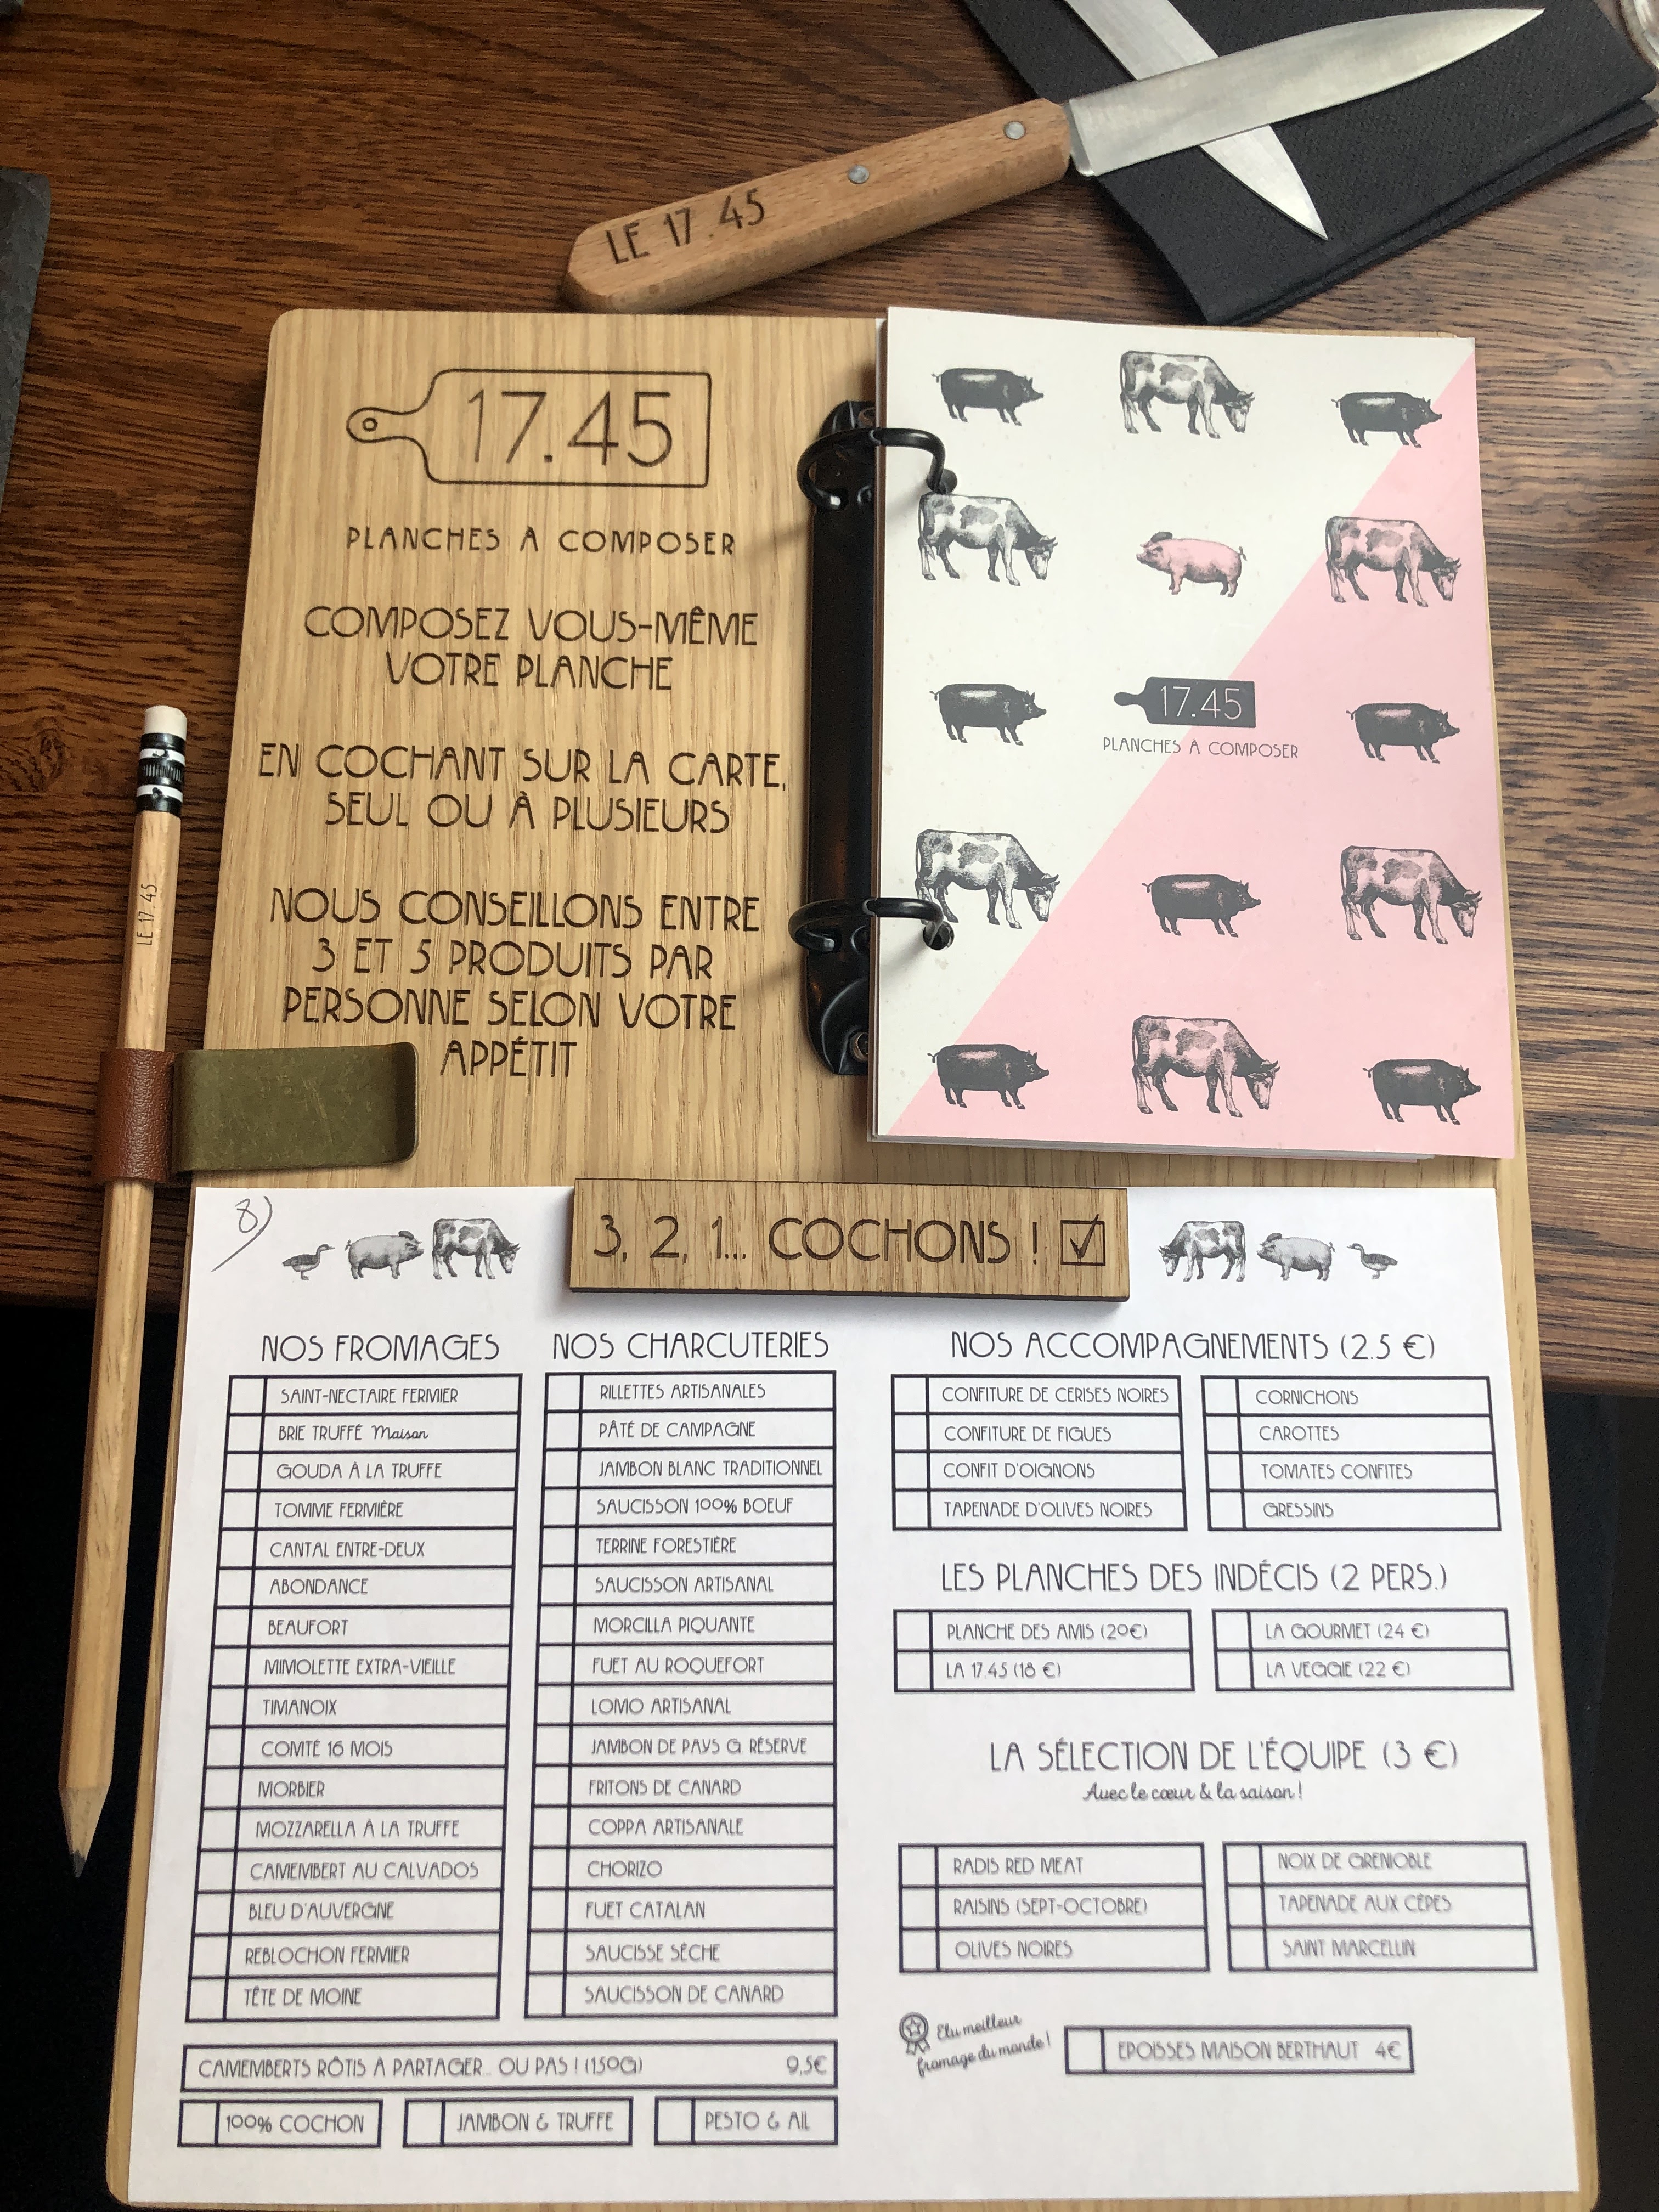 LE 17.45
17.45
PLANCHES À COMPOSER
COMPOSEZ VOUS-MÊME
VOTRE PLANCHE
EN COCHANT SUR LA CARTE,
SEUL OU À PLUSIEURS
NOUS CONSEILLONS ENTRE
3 ET 5 PRODUITS PAR
PERSONNE SELON VOTRE
APPÉTIT
17.45
PLANCHES À COMPOSER
LE 17.45
8)
3, 2, 1... COCHONS !
NOS FROMAGES
SAINT-NECTAIRE FERMIER
BRIE TRUFFÉ Maison
GOUDA À LA TRUFFE
TOMME FERMIÈRE
CANTAL ENTRE-DEUX
ABONDANCE
BEAUFORT
MIMOLETTE EXTRA-VIEILLE
TIMANOIX
COMTÉ 16 MOIS
MORBIER
MOZZARELLA À LA TRUFFE
CAMEMBERT AU CALVADOS
BLEU D'AUVERGNE
REBLOCHON FERMIER
TÊTE DE MOINE
NOS CHARCUTERIES
RILLETTES ARTISANALES
PÂTÉ DE CAMPAGNE
JAMBON BLANC TRADITIONNEL
SAUCISSON 100% BOEUF
TERRINE FORESTIÈRE
SAUCISSON ARTISANAL
MORCILLA PIQUANTE
FUET AU ROQUEFORT
LOMO ARTISANAL
JAMBON DE PAYS G. RÉSERVE
FRITONS DE CANARD
COPPA ARTISANALE
CHORIZO
FUET CATALAN
SAUCISSE SÈCHE
SAUCISSON DE CANARD
CAMEMBERTS RÔTIS À PARTAGER... OU PAS ! (150G) 9,5€
100% COCHON
JAMBON & TRUFFE
PESTO & AIL
NOS ACCOMPAGNEMENTS (2.5 €)
CONFITURE DE CERISES NOIRES
CONFITURE DE FIGUES
CONFIT D'OIGNONS
TAPENADE D'OLIVES NOIRES
CORNICHONS
CAROTTES
TOMATES CONFITES
GRESSINS
LES PLANCHES DES INDÉCIS (2 PERS.)
PLANCHE DES AMIS (20€)
LA 17.45 (18 €)
LA GOURMET (24 €)
LA VEGGIE (22 €)
LA SÉLECTION DE L'ÉQUIPE (3 €)
Avec le cœur & la saison !
RADIS RED MEAT
RAISINS (SEPT-OCTOBRE)
OLIVES NOIRES
NOIX DE GRENOBLE
TAPENADE AUX CÈPES
SAINT MARCELLIN
Elu meilleur
fromage du monde !
EPOISSES MAISON BERTHAUT 4€